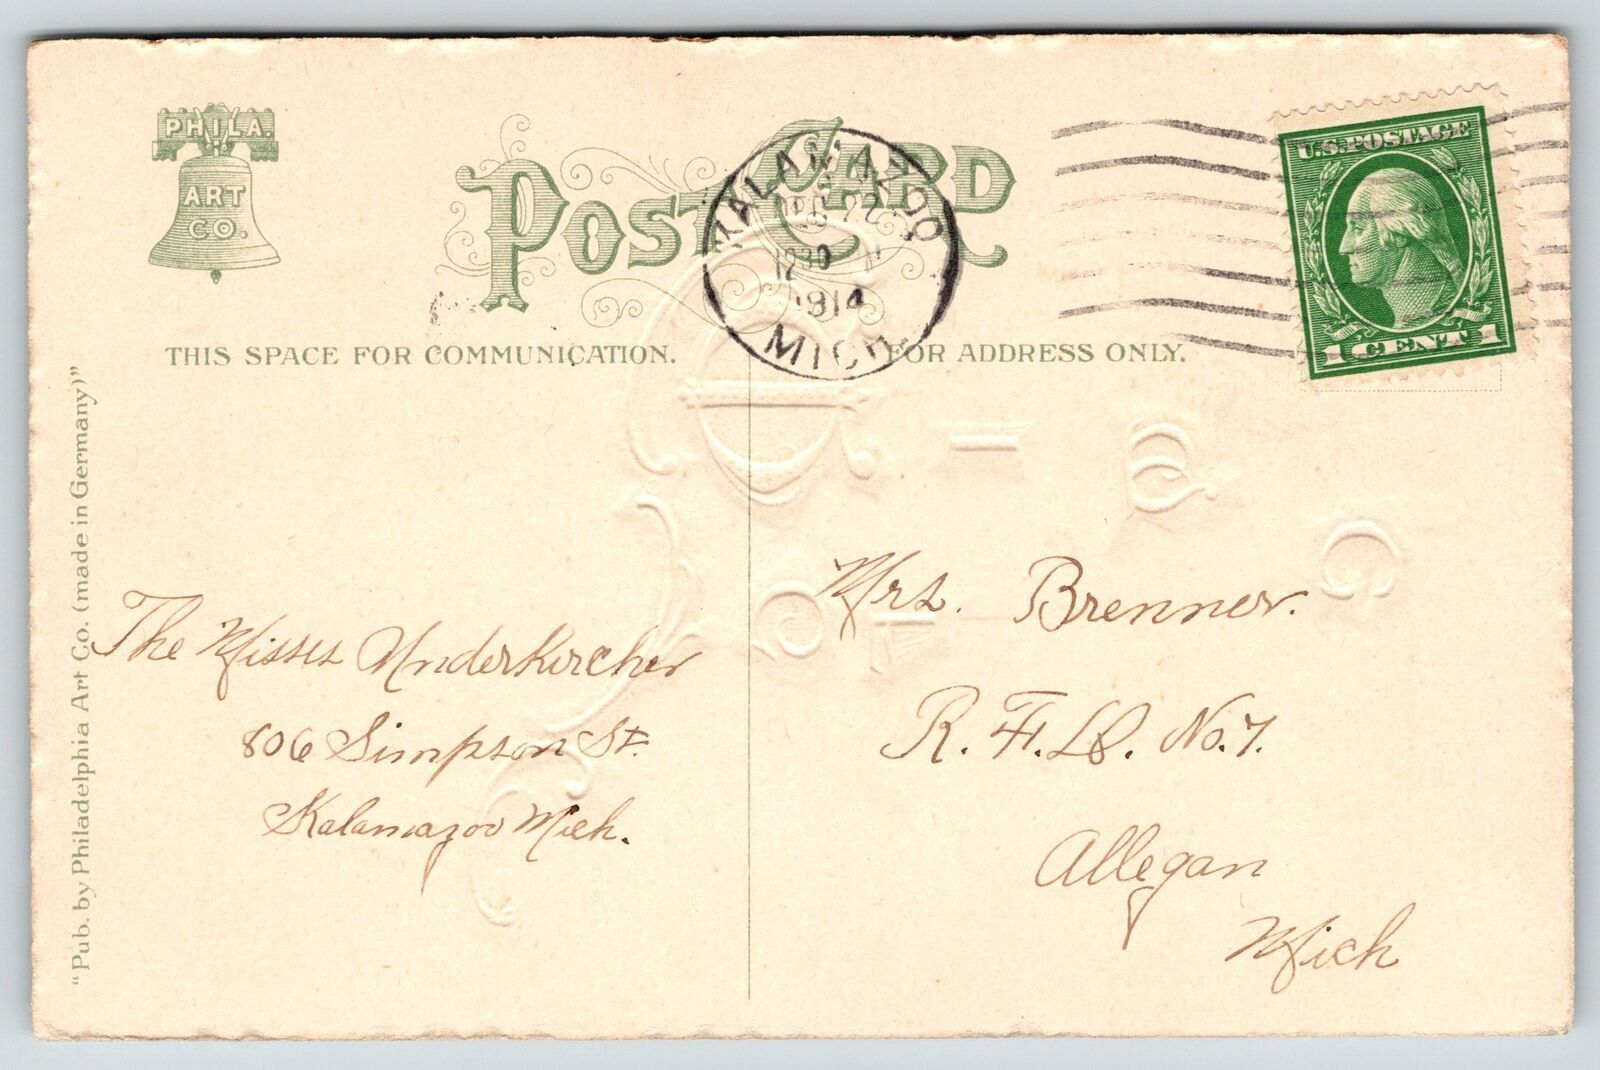 PHILA.
ART
CO.
POST CARD
KALAMAZOO
DEC 22
1230
1914
MICH.
U.S. POSTAGE
1 CENT 1
THIS SPACE FOR COMMUNICATION.
FOR ADDRESS ONLY.
"Pub. by Philadelphia Art Co. (made in Germany)"
The Misses Underkircher
806 Simpson St.
Kalamazoo Mich.
Mrs. Brenner.
R. F. D. No. 7.
Allegan
Mich